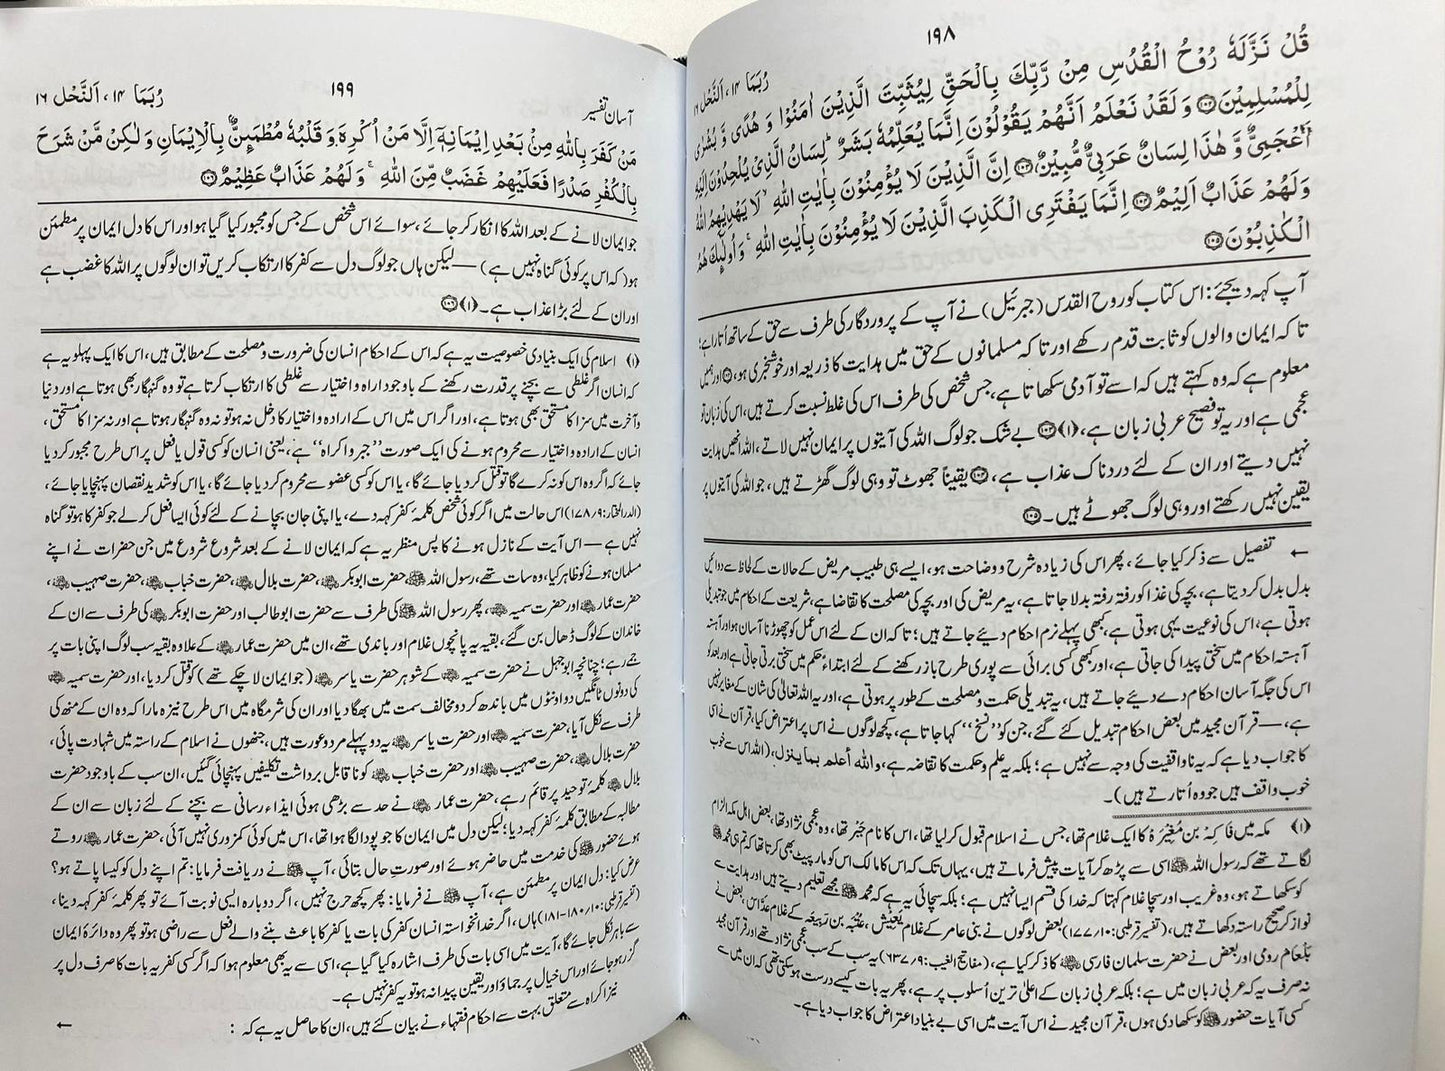 ۱۹۸
رُبَمَا ۱۴، اَلنَّحْل ۱۶
قُلْ نَزَّلَهٗ رُوْحُ الْقُدُسِ مِنْ رَّبِّكَ بِالْحَقِّ لِيُثَبِّتَ الَّذِيْنَ اٰمَنُوْا وَ هُدًى وَّ بُشْرٰى
لِلْمُسْلِمِيْنَ۝۱۰۲ وَ لَقَدْ نَعْلَمُ اَنَّهُمْ يَقُوْلُوْنَ اِنَّمَا يُعَلِّمُهٗ بَشَرٌ ؕ لِسَانُ الَّذِيْ يُلْحِدُوْنَ اِلَيْهِ
اَعْجَمِيٌّ وَّ هٰذَا لِسَانٌ عَرَبِيٌّ مُّبِيْنٌ۝۱۰۳ اِنَّ الَّذِيْنَ لَا يُؤْمِنُوْنَ بِاٰيٰتِ اللّٰهِ ۙ لَا يَهْدِيْهِمُ اللّٰهُ
وَ لَهُمْ عَذَابٌ اَلِيْمٌ۝۱۰۴ اِنَّمَا يَفْتَرِى الْكَذِبَ الَّذِيْنَ لَا يُؤْمِنُوْنَ بِاٰيٰتِ اللّٰهِ ۚ وَ اُولٰٓئِكَ هُمُ
الْكٰذِبُوْنَ۝۱۰۵
آپ کہہ دیجئے: اس کتاب کو روح القدس (جبرئیل) نے آپ کے پروردگار کی طرف سے حق کے ساتھ اُتارا ہے؛
تا کہ ایمان والوں کو ثابت قدم رکھے اور تا کہ مسلمانوں کے حق میں ہدایت کا ذریعہ اور خوشخبری ہو،۝۱۰۲ اور ہمیں
معلوم ہے کہ وہ کہتے ہیں کہ اسے تو آدمی سکھاتا ہے، جس شخص کی طرف اس کی غلط نسبت کرتے ہیں، اس کی زبان تو
عجمی ہے اور یہ تو فصیح عربی زبان ہے،(۱)۝۱۰۳ بے شک جو لوگ اللہ کی آیتوں پر ایمان نہیں لاتے، اللہ انھیں ہدایت
نہیں دیتے اور ان کے لئے دردناک عذاب ہے،۝۱۰۴ یقیناً جھوٹ تو وہی لوگ گھڑتے ہیں، جو اللہ کی آیتوں پر
یقین نہیں رکھتے اور وہی لوگ جھوٹے ہیں۔۝۱۰۵
← تفصیل سے ذکر کیا جائے، پھر اس کی زیادہ شرح و وضاحت ہو، ایسے ہی طبیب مریض کے حالات کے لحاظ سے دوائیں
بدل بدل کر دیتا ہے، بچہ کی غذا کو رفتہ رفتہ بدلا جاتا ہے، یہ مریض کی اور بچہ کی مصلحت کا تقاضا ہے، شریعت کے احکام میں جو تبدیلی
ہوتی ہے، اس کی نوعیت یہی ہوتی ہے، کبھی پہلے نرم احکام دیئے جاتے ہیں؛ تا کہ ان کے لئے اس عمل کو چھوڑنا آسان ہو اور آہستہ
آہستہ احکام میں سختی پیدا کی جاتی ہے، اور کبھی کسی برائی سے پوری طرح باز رکھنے کے لئے ابتداء حکم میں سختی برتی جاتی ہے اور بعد کو
اس کی جگہ آسان احکام دے دیئے جاتے ہیں، یہ تبدیلی حکمت و مصلحت کے طور پر ہوتی ہے، اور یہ اللہ تعالیٰ کی شان کے مغایر نہیں
ہے، — قرآن مجید میں بعض احکام تبدیل کئے گئے، جن کو "نسخ" کہا جاتا ہے، کچھ لوگوں نے اس پر اعتراض کیا، قرآن نے اسی
کا جواب دیا ہے کہ یہ ناواقفیت کی وجہ سے نہیں ہے؛ بلکہ یہ علم و حکمت کا تقاضہ ہے، والله أعلم بما ینزل، (اللہ اس سے خوب
خوب واقف ہیں جو وہ اُتارتے ہیں)۔
(۱) مکہ میں فاکِہ بن مُغِیْرَہ کا ایک غلام تھا، جس نے اسلام قبول کر لیا تھا، اس کا نام جَبر تھا، وہ عجمی نژاد تھا، بعض اہل مکہ الزام
لگاتے تھے کہ رسول اللہ ﷺ اسی سے پڑھ کر آیات پیش فرماتے ہیں، یہاں تک کہ اس کا مالک اس کو مار پیٹ بھی کرتا تھا کہ تم ہی محمد ﷺ
کو سکھاتے ہو، وہ غریب اور سچا غلام کہتا کہ خدا کی قسم ایسا نہیں ہے؛ بلکہ سچائی یہ ہے کہ محمد ﷺ مجھے تعلیم دیتے ہیں اور ہدایت سے
نواز کر صحیح راستہ دکھاتے ہیں، (تفسیر قرطبی: ۱۰/۱۷۷) بعض لوگوں نے بنی عامر کے غلام یَعِیْش، عتبہ بن ربیعہ کے غلام عدّاس، بعض نے
بلعام رومی اور بعض نے حضرت سلمان فارسی ؓ کا ذکر کیا ہے، (مفاتیح الغیب: ۹/۶۳۷) یہ سب کے سب عجمی نژاد تھے اور قرآن مجید
نہ صرف یہ کہ عربی زبان میں ہے؛ بلکہ عربی زبان کے اعلیٰ ترین اُسلوب پر ہے، پھر یہ بات کیسے درست ہو سکتی تھی کہ ان میں سے
کسی آیات حضور ﷺ کو سکھا دی ہوں، قرآن مجید نے اس آیت میں اسی بے بنیاد اعتراض کا جواب دیا ہے۔
آسان تفسیر
۱۹۹
رُبَمَا ۱۴، اَلنَّحْل ۱۶
مَنْ كَفَرَ بِاللّٰهِ مِنْۢ بَعْدِ اِيْمَانِهٖۤ اِلَّا مَنْ اُكْرِهَ وَ قَلْبُهٗ مُطْمَىِٕنٌّۢ بِالْاِيْمَانِ وَ لٰكِنْ مَّنْ شَرَحَ
بِالْكُفْرِ صَدْرًا فَعَلَيْهِمْ غَضَبٌ مِّنَ اللّٰهِ ۚ وَ لَهُمْ عَذَابٌ عَظِيْمٌ۝۱۰۶
جو ایمان لانے کے بعد اللہ کا انکار کر جائے، سوائے اس شخص کے جس کو مجبور کیا گیا ہو اور اس کا دل ایمان پر مطمئن
ہو (کہ اس پر کوئی گناہ نہیں ہے) — لیکن ہاں جو لوگ دل سے کفر کا ارتکاب کریں تو ان لوگوں پر اللہ کا غضب ہے
اور ان کے لئے بڑا عذاب ہے۔(۱)۝۱۰۶
(۱) اسلام کی ایک بنیادی خصوصیت یہ ہے کہ اس کے احکام انسان کی ضرورت و مصلحت کے مطابق ہیں، اس کا ایک پہلو یہ ہے
کہ انسان اگر غلطی سے بچنے پر قدرت رکھنے کے باوجود ارادہ و اختیار سے غلطی کا ارتکاب کرتا ہے تو وہ گنہگار بھی ہوتا ہے اور دنیا
و آخرت میں سزا کا مستحق بھی ہوتا ہے، اور اگر اس میں اس کے ارادہ و اختیار کا دخل نہ ہو تو نہ وہ گنہگار ہوتا ہے اور نہ سزا کا مستحق،
انسان کے ارادہ و اختیار سے محروم ہونے کی ایک صورت "جبر و اکراہ" ہے، یعنی انسان کو کسی قول یا فعل پر اس طرح مجبور کر دیا
جائے کہ اگر وہ اس کو نہ کرے گا تو قتل کر دیا جائے گا، یا اس کو کسی عضو سے محروم کر دیا جائے گا، یا اس کو شدید نقصان پہنچایا جائے،
(الدر المختار: ۹/۱۷۸) اس حالت میں اگر کوئی شخص کلمۂ کفر کہہ دے، یا اپنی جان بچانے کے لئے کوئی ایسا فعل کر لے جو کفر کا ہو تو گناہ
نہیں ہے — اس آیت کے نازل ہونے کا پس منظر یہ ہے کہ ایمان لانے کے بعد شروع شروع میں جن حضرات نے اپنے
مسلمان ہونے کو ظاہر کیا، وہ سات تھے، رسول اللہ ﷺ، حضرت ابوبکر ؓ، حضرت بلال ؓ، حضرت خباب ؓ، حضرت صہیب ؓ،
حضرت عمار ؓ اور حضرت سمیہ ؓ، پھر رسول اللہ ﷺ کی طرف سے حضرت ابوطالب اور حضرت ابوبکر ؓ کی طرف سے ان کے
خاندان کے لوگ ڈھال بن گئے، بقیہ یہ پانچوں غلام اور باندی تھے، ان میں حضرت عمار ؓ کے علاوہ بقیہ سب لوگ اپنی بات پر
جمے رہے؛ چنانچہ ابوجہل نے حضرت سمیہ ؓ کے شوہر حضرت یاسر ؓ (جو ایمان لا چکے تھے) کو قتل کر دیا، اور حضرت سمیہ ؓ
کی دونوں ٹانگیں دو اونٹوں میں باندھ کر دو مخالف سمت میں بھگا دیا اور ان کی شرمگاہ میں اس طرح نیزہ مارا کہ وہ ان کے منھ کی
طرف سے نکل آیا، حضرت سمیہ ؓ اور حضرت یاسر ؓ یہ دو پہلے مرد و عورت ہیں، جنھوں نے اسلام کے راستہ میں شہادت پائی،
حضرت بلال ؓ، حضرت صہیب ؓ اور حضرت خباب ؓ کو ناقابل برداشت تکلیفیں پہنچائی گئیں، ان سب کے باوجود حضرت
بلال ؓ کلمۂ توحید پر قائم رہے، حضرت عمار ؓ نے حد سے بڑھی ہوئی ایذاء رسانی سے بچنے کے لئے زبان سے ان کے
مطالبہ کے مطابق کلمۂ کفر کہہ دیا؛ لیکن دل میں ایمان کا جو پودا لگا ہوا تھا، اس میں کوئی کمزوری نہیں آئی، حضرت عمار ؓ روتے
ہوئے حضور ﷺ کی خدمت میں حاضر ہوئے اور صورتِ حال بتائی، آپ ﷺ نے دریافت فرمایا: تم اپنے دل کو کیسا پاتے ہو؟
عرض کیا: دل ایمان پر مطمئن ہے، آپ ﷺ نے فرمایا: پھر کچھ حرج نہیں، اگر دوبارہ ایسی نوبت آئے تو پھر کلمۂ کفر کہہ دینا،
(تفسیر قرطبی: ۱۰/۱۸۰-۱۸۱) ہاں، اگر خدانخواستہ انسان کفر کی بات یا کفر کا باعث بننے والے فعل سے راضی ہو تو پھر وہ دائرۂ ایمان
سے باہر نکل جائے گا، آیت میں اسی بات کی طرف اشارہ کیا گیا ہے، اسی سے یہ بھی معلوم ہوا کہ اگر کسی کفریہ بات کا صرف دل پر
گزر ہو جائے اور اس خیال پر جماؤ اور یقین پیدا نہ ہو تو یہ کفر نہیں ہے۔
نیز اکراہ سے متعلق بہت سے احکام فقہاء نے بیان کئے ہیں، ان کا حاصل یہ ہے کہ :
←